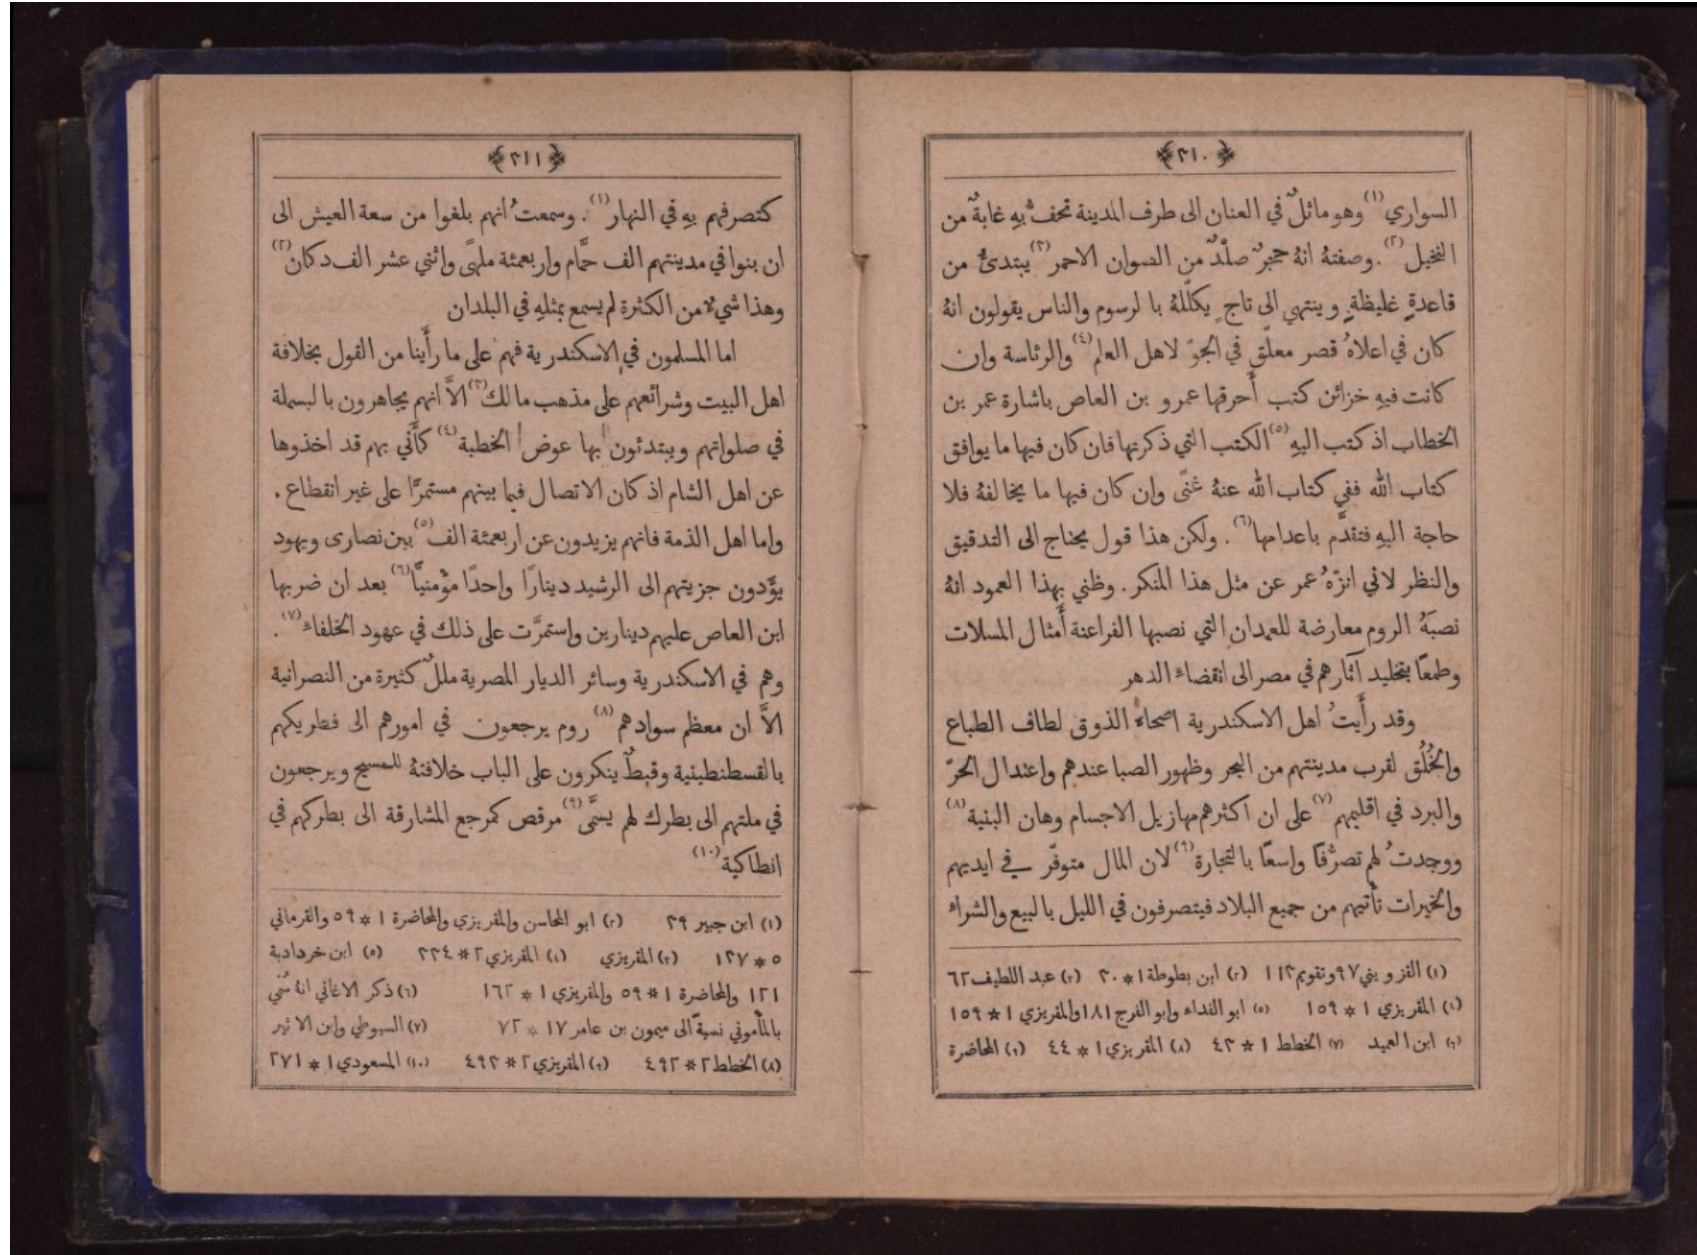 ﴿٢١٠﴾
السواري (١) وهو ماثلٌ في العنان الى طرف المدينة تحفُّ بهِ غابةٌ من
النخيل (٢). وصفتهُ انهُ حجرٌ صلْدٌ من الصوان الاحمر (٣) يبتدئُ من
قاعدةٍ غليظةٍ وينتهي الى تاجٍ يكلّلهُ بالرسوم والناس يقولون انهُ
كان في اعلاهُ قصر معلّق في الجوّ لاهل العلم (٤) والرئاسة وان
كانت فيهِ خزائن كتب أَحرقها عمرو بن العاص باشارة عمر بن
الخطاب اذ كتب اليهِ (٥) الكتب التي ذكرتها فان كان فيها ما يوافق
كتاب الله ففي كتاب الله عنهُ غنًى وان كان فيها ما يخالفهُ فلا
حاجة اليهِ فتقدَّم باعدامها (٦). ولكن هذا قول يحتاج الى التدقيق
والنظر لاني انزّهُ عمر عن مثل هذا المنكر. وظني بهذا العمود انهُ
نصبَهُ الروم معارضة للعمدان التي نصبها الفراعنة أَمثال المسلات
وطمعًا بتخليد آثارهم في مصر الى انقضاء الدهر
وقد رأَيتُ اهل الاسكندرية اصحاء الذوق لطاف الطباع
والخُلُق لقرب مدينتهم من البحر وظهور الصبا عندهم واعتدال الحرّ
والبرد في اقليمهم (٧) على ان اكثرهم مهازيل الاجسام وهان البنية (٨)
ووجدتُ لهم تصرُّفًا واسعًا بالتجارة (٩) لان المال متوفّر في ايديهم
والخيرات تأتيهم من جميع البلاد فيتصرفون في الليل بالبيع والشراء
(١) القزويني ٩٧ وتقويم ١١٣ (٢) ابن بطوطة ١*٣٠ (٣) عبد اللطيف ٦٢
(٤) المقريزي ١*١٥٩ (٥) ابو الفداء وابو الفرج ١٨١ والمقريزي ١*١٥٩
(٦) ابن العميد (٧) الخطط ١*٤٣ (٨) المقريزي ١*٤٤ (٩) المحاضرة
﴿٢١١﴾
كتصرفهم بهِ في النهار (١). وسمعتُ انهم بلغوا من سعة العيش الى
ان بنوا في مدينتهم الف حمَّام واربعمئة ملهًى واثني عشر الف دكان (٢)
وهذا شيء من الكثرة لم يسمع بمثلهِ في البلدان
اما المسلمون في الاسكندرية فهم على ما رأَينا من القول بخلافة
اهل البيت وشرائعهم على مذهب مالك (٣) الاَّ انهم يجاهرون بالبسملة
في صلواتهم ويبتدئون بها عوض الخطبة (٤) كأَني بهم قد اخذوها
عن اهل الشام اذ كان الاتصال فيما بينهم مستمرًّا على غير انقطاع.
واما اهل الذمة فانهم يزيدون عن اربعمئة الف (٥) بين نصارى ويهود
يؤَدون جزيتهم الى الرشيد دينارًا واحدًا مؤْمنيًّا (٦) بعد ان ضربها
ابن العاص عليهم دينارين واستمرَّت على ذلك في عهود الخلفاء (٧).
وهم في الاسكندرية وسائر الديار المصرية مللٌ كثيرة من النصرانية
الاَّ ان معظم سوادهم (٨) روم يرجعون في امورهم الى فطريكهم
بالقسطنطينية وقبطٌ ينكرون على الباب خلافتهُ للمسيح ويرجعون
في ملتهم الى بطرك لهم يسمَّى (٩) مرقص كمرجع المشارقة الى بطركهم في
انطاكية (١٠)
(١) ابن جبير ٣٩ (٢) ابو المحاسن والمقريزي والمحاضرة ١*٥٩ والقرماني
٥*١٢٧ (٣) المقريزي (٤) المقريزي ٢*٣٣٤ (٥) ابن خردادبة
١٢١ والمحاضرة ١*٥٩ والمقريزي ١*١٦٢ (٦) ذكر الاغاني انهُ سُمّي
بالمأْموني نسبةً الى ميمون بن عامر ١٧*٧٢ (٧) السيوطي وابن الاثير
(٨) الخطط ٢*٤٩٢ (٩) المقريزي ٢*٤٩٣ (١٠) المسعودي ١*٢٧١